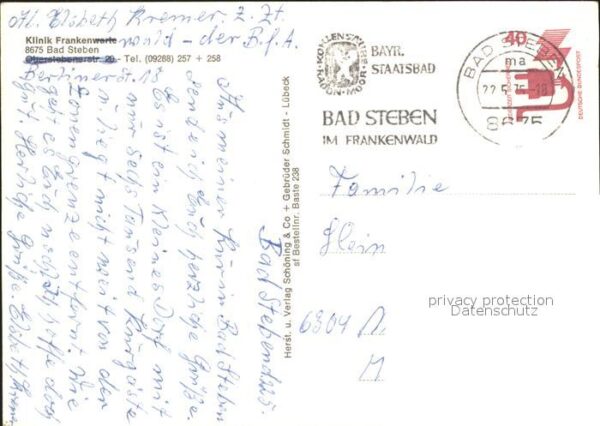 Abs. Elsbeth Kremer, z. Zt.
Klinik Frankenwarte
wald - der B.f.A.
8675 Bad Steben
Oberstebenerstr. 20 - Tel. (09288) 257 + 258
Berliner St. 18
Bad Steben d. 22.5.
Aus meiner Kur in Bad Steben
sende ich Euch herzliche Grüße.
Es ist ein kleines Dorf mit
nur sechs Tausend Kurgäste
u. liegt nicht weit von der
Zonengrenze entfernt. Wie
geht es Euch noch? Ich hoffe doch
gut. Herzliche Grüße
Herst. u. Verlag Schöning & Co + Gebrüder Schmidt - Lübeck
sf Bestellnr. Baste 238
KOHLENSÄURE
BAYR.
STAATSBAD
BAD STEBEN
IM FRANKENWALD
BAD STEBEN
ma
22.5.75-18
8675
40
DEUTSCHE BUNDESPOST
Familie
Klein
privacy protection
Datenschutz